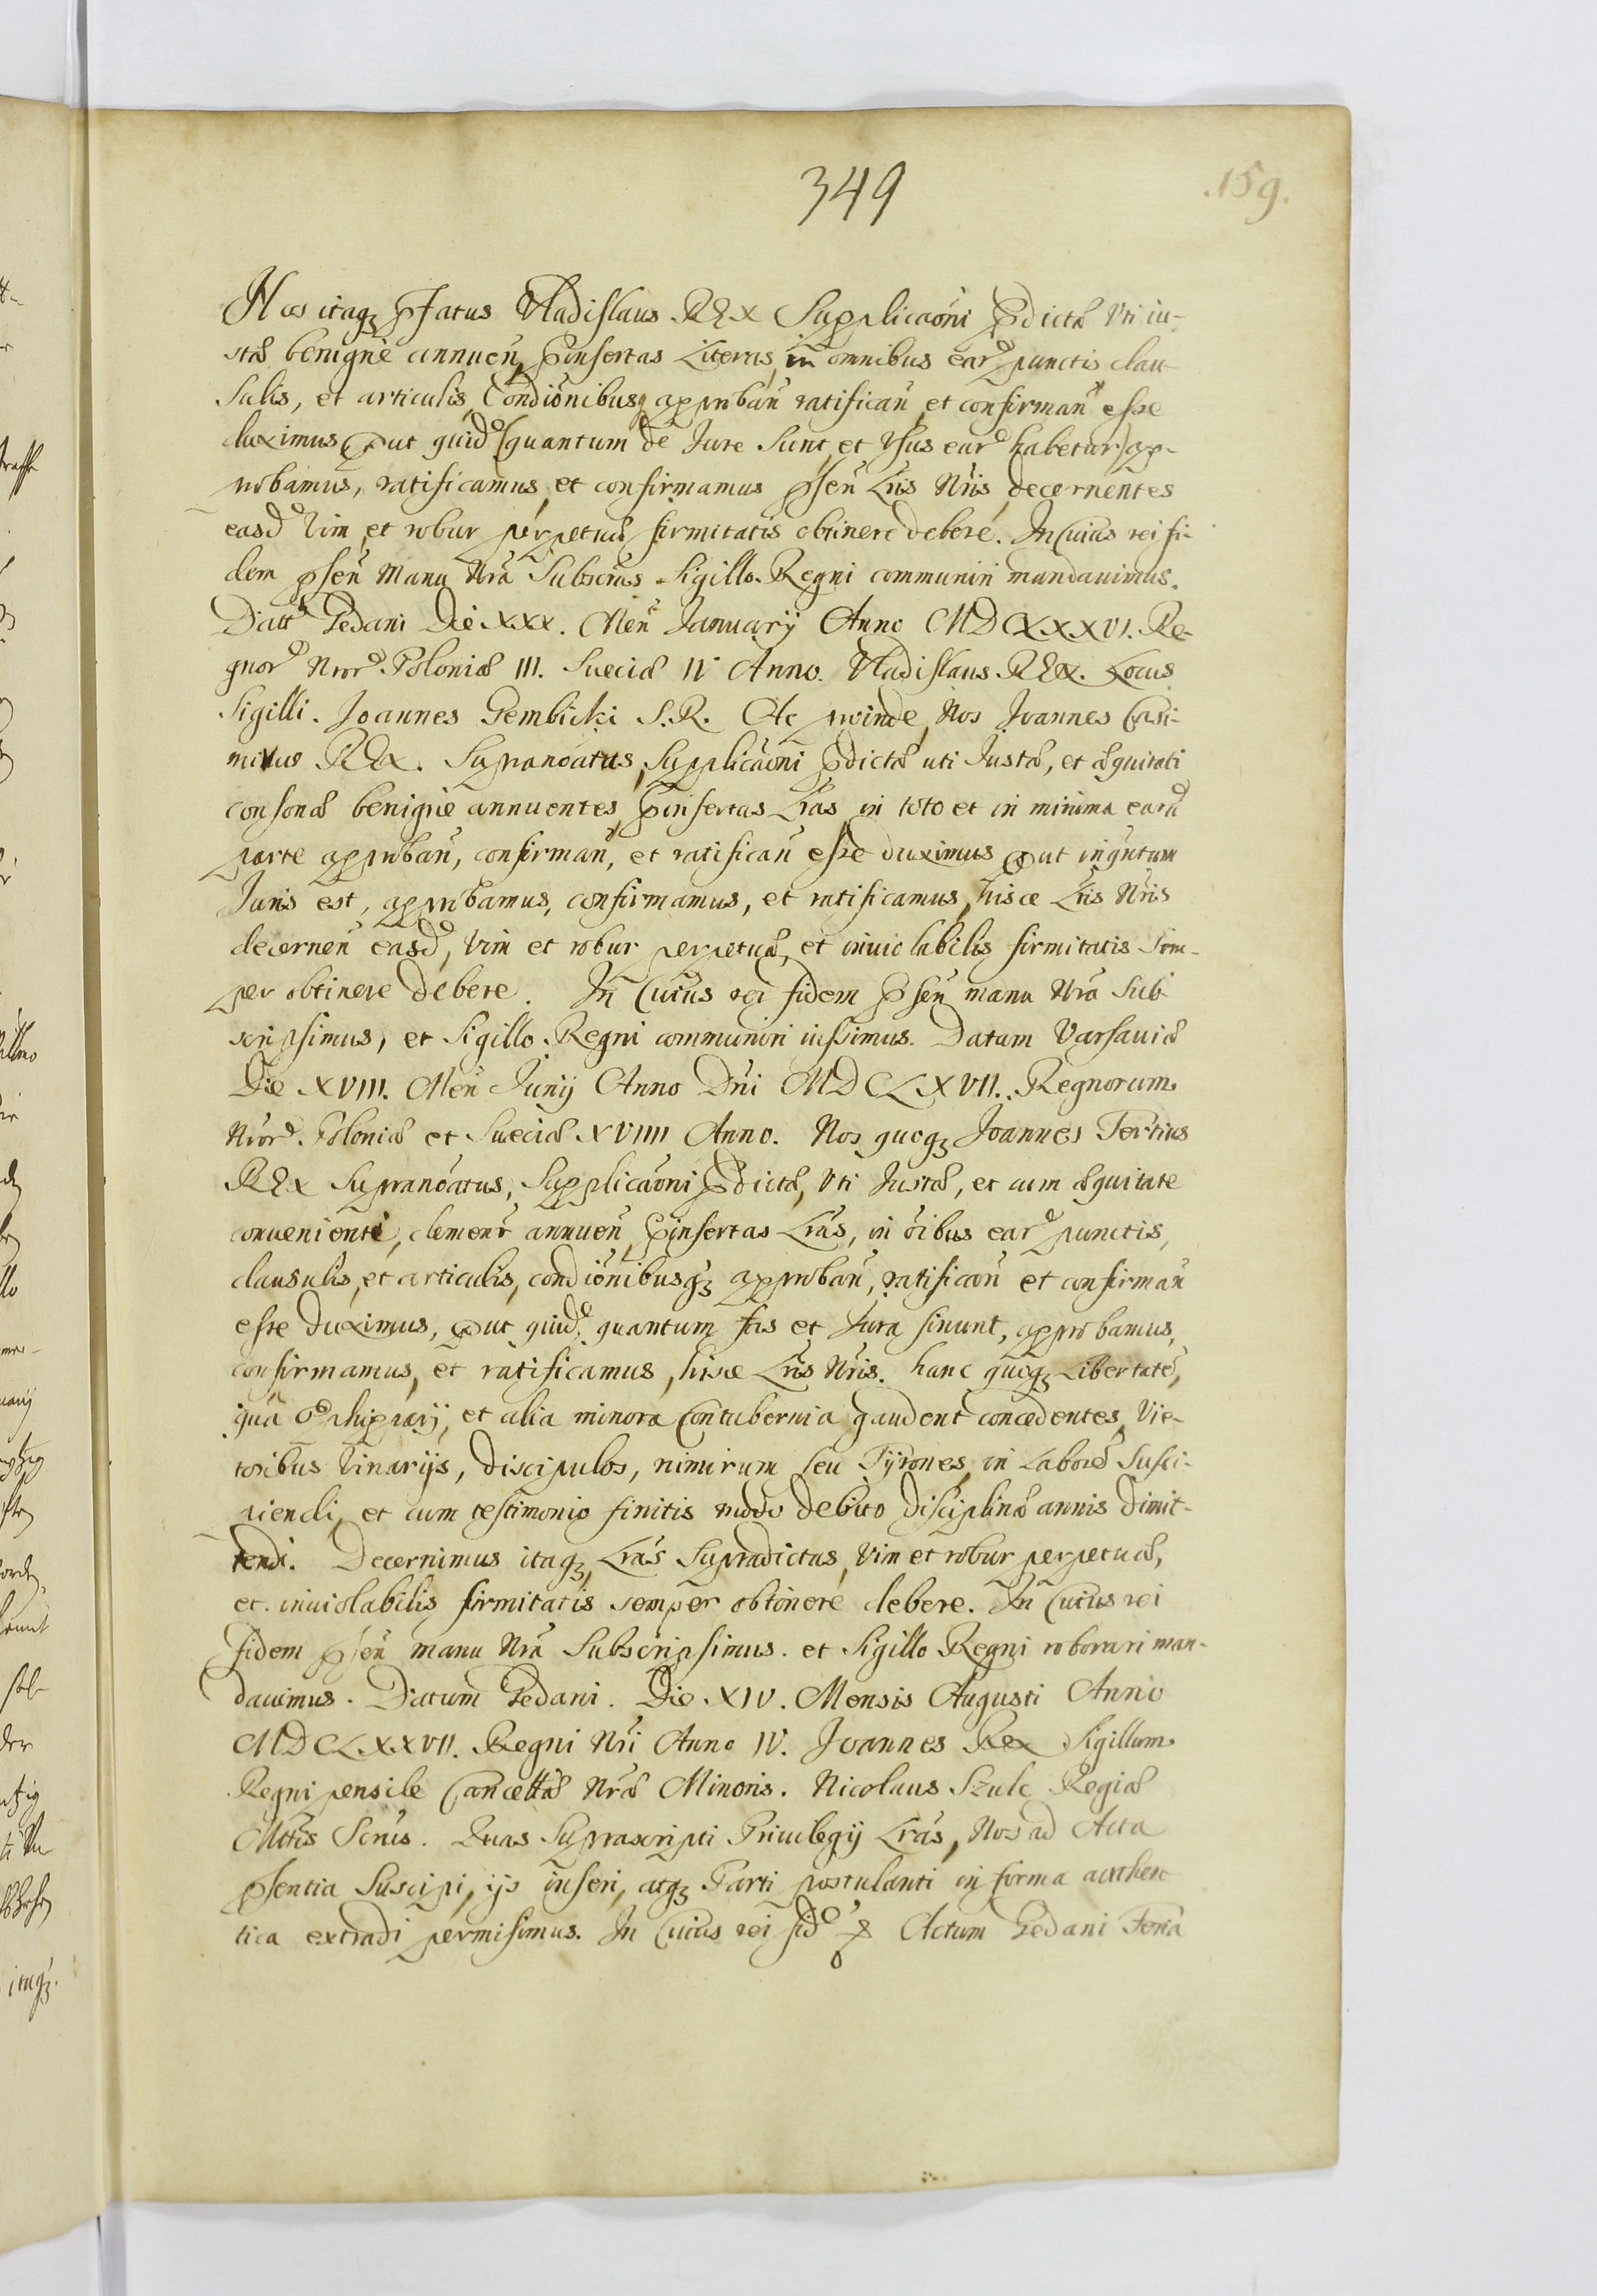 349
159.
Nos itaq₃ p̄fatus Vladislaus REX Supplicaōni p̄dictæ Vti iu-
stæ benigne annuen̄, p̄insertas Literas, in omnibus ear punctis clau
sulis, et articulis, Condiōnibusq₃ approban̄ ratifican̄ et confirman̄ esse
duximus, put quid (quantum de Iure sunt, et Vsus ear habetur) ap-
probamus, ratificamus, et confirmamus p̄sen̄ Lr̄is Nr̄is, decernentes
easd Vim et robur perpetuæ firmitatis obtinere debere. In Cuius rei fi-
dem p̄sen̄ Manu Nr̄a Subscrī Sigillo Regni communiri mandauimus.
Datt Gedani Die XXX. Men̄ Ianuarij Anno MDCXXXVI. Re-
gnor Nror Poloniæ III. Sueciæ IV Anno. Vladislaus REX. Locus
Sigilli. Joannes Gembicki S.R. Ac proinde, Nos Joannes Casi-
mirus REX. Supranōatus, Supplicaōni p̄dictæ uti Iustæ, et æquitati
consonæ benigne annuentes, p̄insertas Lr̄as, in toto et in minima earū
parte approban̄, confirman̄, et ratifican̄ esse duximus put inquntum
Juris est, approbamus, confirmamus, et ratificamus, hisce Lr̄is Nr̄is
decernen̄ easd, Vim et robur perpetuæ, et inuiolabilis firmitatis sem-
per obtinere debere. In Cuius rei fidem p̄sen̄ manu Nr̄a Sub
scripsimus, et Sigillo Regni communiri iussimus. Datum Varsauiæ
Die XVIII. Men̄ Junij Anno Dn̄i MDCLXVII. Regnorum
Nror Poloniæ et Sueciæ XVIIII Anno. Nos quoq₃ Joannes Tertius
REX Supranōatus, Supplicaōni p̄dictæ, Vti Iustæ, et cum æquitate
conuenienti, clement annuen̄, p̄insertas Lr̄as, in ōibus ear punctis,
clausulis, et articulis, condiōnibusq₃ approban̄, ratifican̄ et confirman̄
esse duximus, put quid, quantum fas et Jura sinunt, approbamus,
confirmamus, et ratificamus, hisce Lr̄is Nr̄is. hanc quoq₃ Libertatē,
quā Ephippiarij, et alia minora Contubernia gaudent concedentes, Vie-
toribus Vinarijs, discipulos, nimirum seu Tyrones, in Laborē Susci-
piendi, et cum testimonio finitis modo debito disciplinæ annis dimit-
tendi. Decernimus itaq₃, Lr̄as Supradictas, Vim et robur perpetuæ,
et inuiolabilis firmitatis semper obtinere debere. In Cuius rei
fidem p̄sen̄ manu Nr̄a Subscripsimus. et Sigillo Regni roborari man-
dauimus. Datum Gedani. Die XIV. Mensis Augusti Anno
MDCLXXVII. Regni Nr̄i Anno IV. Joannes Rex Sigillum
Regni pensile Cancellæ Nr̄æ Minoris. Nicolaus Szulc Regiæ
Mttis Scr̄ius. Quas Suprascripti Priuilegij Lr̄as, Nos ad Acta
p̄sentia Suscipi, ijs inseri, atq₃ Parti postulanti in forma authen
tica extradi permisimus. In Cuius rei fid Actum Gedani Feria